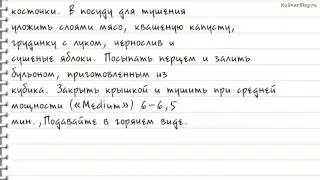 KulinarBlog.ru
косточки. В посуду для тушения
уложить слоями мясо, квашеную капусту,
грудинку с луком, чернослив и
сушеные яблоки. Посыпать перцем и залить
бульоном, приготовленным из
кубика. Закрыть крышкой и тушить при средней
мощности («Medium») 6-6,5
мин., Подавайте в горячем виде.